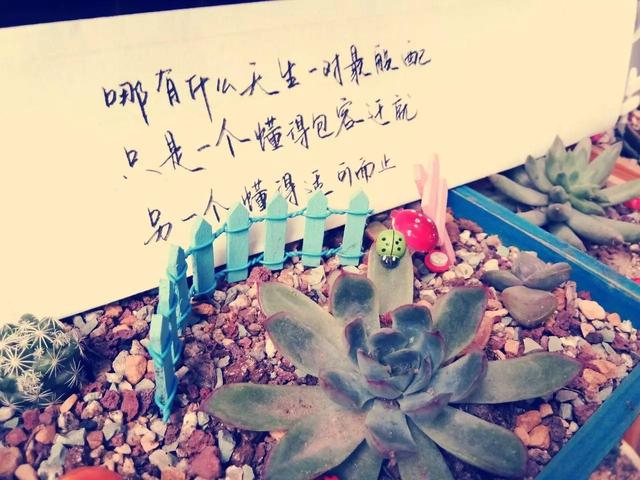 哪有什么天生一对最般配
只是一个懂得包容迁就
另一个懂得适可而止